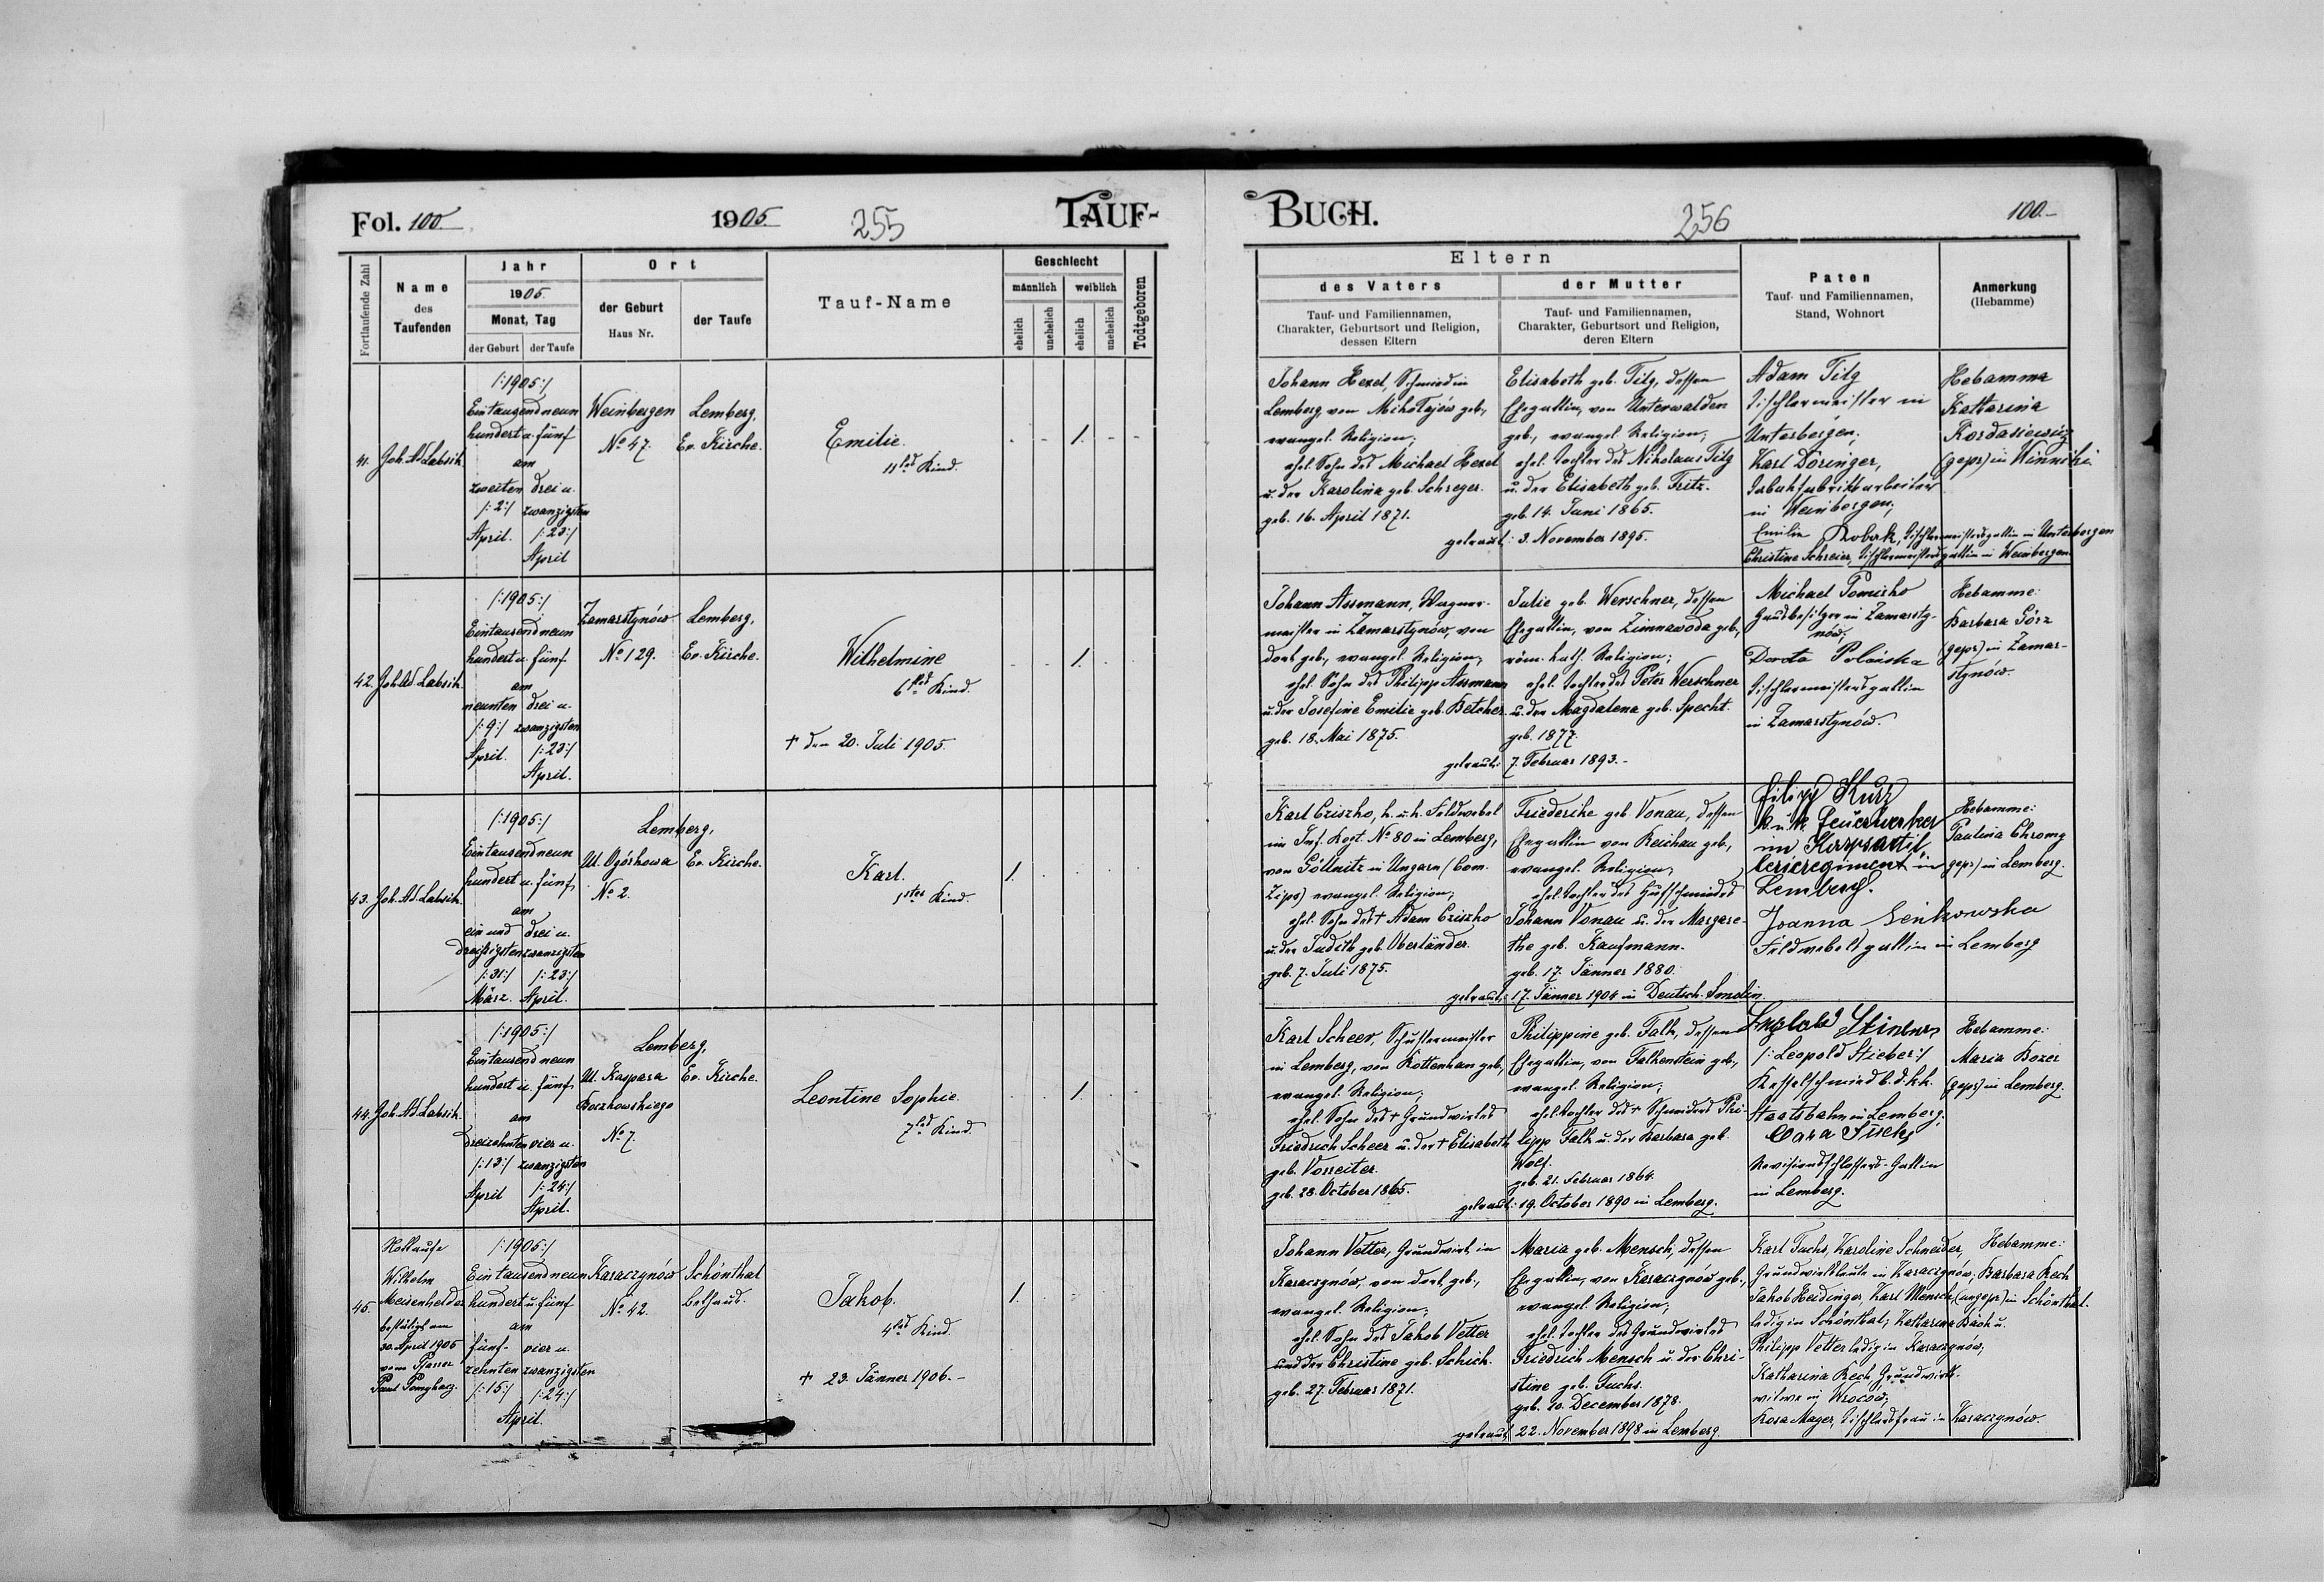 Fol. 100
1905.
255
TAUF-
Fortlaufende Zahl
Name
des
Taufenden
Jahr
1905.
Monat, Tag
der Geburt
der Taufe
Ort
der Geburt
Haus Nr.
der Taufe
Tauf-Name
Geschlecht
männlich
weiblich
ehelich
unehelich
ehelich
unehelich
Todtgeboren
41.
Joh. Ad. Labsik
/:1905:/
Eintausendneun
hundert u. fünf
am
zweiten
/:2:/
April.
drei u.
zwanzigsten
/:23:/
April
Weinbergen
No 47.
Lemberg,
Ev. Kirche.
Emilie.
11tes Kind.
1.
42.
Joh. Ad. Labsik.
/:1905:/
Eintausendneun
hundert u. fünf
am
neunten
/:9:/
April.
drei u.
zwanzigsten
/:23:/
April.
Zamarstynów
No 129.
Lemberg,
Ev. Kirche.
Wilhelmine
6tes Kind.
† den 20. Juli 1905.
1.
43.
Joh. Ad. Labsik.
/:1905:/
Eintausendneun
hundert u. fünf
am
ein und
dreißigsten
/:31:/
März.
drei u.
zwanzigsten
/:23:/
April.
Lemberg,
Ul. Ogórkowa
No 2.
Ev. Kirche.
Karl.
1stes Kind.
1.
44.
Joh. Ad. Labsik.
/:1905:/
Eintausendneun
hundert u. fünf
am
dreizehnten
/:13:/
April
vier u.
zwanzigsten
/:24:/
April.
Lemberg,
Ul. Kaspara
Boczkowskiego
No 7.
Ev. Kirche.
Leontine Sophie.
7tes Kind.
1.
45.
Nottaufe
Wilhelm
Meisenhelder
bestätigt am
30. April 1905
vom Pfarrer
Paul
/:1905:/
Eintausendneun
hundert u. fünf
am
fünf-
zehnten
/:15:/
vier u.
zwanzigsten
/:24:/
April.
Karaczynów
No 42.
Schönthal
Bethaus.
Jakob.
4tes Kind.
† 23. Jänner 1906.-
1.
BUCH.
256
100.-
Eltern
des Vaters
Tauf- und Familiennamen,
Charakter, Geburtsort und Religion,
dessen Eltern
der Mutter
Tauf- und Familiennamen,
Charakter, Geburtsort und Religion,
deren Eltern
Paten
Tauf- und Familiennamen,
Stand, Wohnort
Anmerkung
(Hebamme)
Johann Hexel, Schmied in
Lemberg, von Mikołajów geb.,
evangel. Religion;
ehel. Sohn des Michael Hexel
u. der Karolina geb. Schreyer.
geb. 16. April 1871.
Elisabeth geb. Tilg, dessen
Ehegattin, von Unterwalden
geb., evangel. Religion;
ehel. Tochter des Nikolaus Tilg
u. der Elisabeth geb. Fritz.
geb. 14. Juni 1865.
getraut: 3. November 1895.
Adam Tilg
Tischlermeister in
Unterbergen;
Karl Döringer,
Tabakfabriksarbeiter
in Weinbergen;
Emilie Drobek, Tischlermeistersgattin in Unterbergen
Christine Schreier, Tischlermeistersgattin in Weinbergen.
Hebamme
Katharina
Kordasiewicz
(gepr) in Winniki.
Johann Assmann, Wagner-
meister in Zamarstynów, von
dort geb., evangel. Religion;
ehel. Sohn des Philipp Assmann
u. der Josefine Emilie geb. Betcher.
geb. 18. Mai 1875.
Julie geb. Werschner, dessen
Ehegattin, von Zimnawoda geb.,
röm. kath. Religion;
ehel. Tochter des Peter Werschner
u. der Magdalena geb. Specht.
geb. 1877.
getraut: 7. Februar 1893.-
Michael
Grundbesitzer in Zamarsty-
nów;
Dorota
Tischlermeistersgattin
in Zamarstynów.
Hebamme:
Barbara Görz
(gepr) in Zamar-
stynów.
Karl Cziszko, k. u. k. Feldwebel
im Inf. Regt. No 80 in Lemberg,
von Göllnitz in Ungarn (Com.
Zips) evangel. Religion;
ehel. Sohn des † Adam Cziszko
u. der Judith geb. Oberländer.
geb. 7. Juli 1875.
Friederike geb. Vonau, dessen
Ehegattin von Reichau geb.,
evangel. Religion,
ehel. Tochter des Hufschmiedes
Johann Vonau u. der Margare-
the geb. Kaufmann.
geb. 17. Jänner 1880.
getraut: 17. Jänner 1904 in Deutsch-Smolin
Filipp Kurz
k. u. k. Feuerwerker
im Korpsartil
lerieregiment in
Lemberg.
Joanna Senkowska
Feldwebelsgattin in Lemberg
Hebamme:
Paulina Chromy
gepr) in Lemberg.
Karl Scheer, Schustermeister
in Lemberg, von Rottenhan geb.,
evangel. Religion;
ehel. Sohn des † Grundwirtes
Friedrich Scheer u. der † Elisabeth
geb. Vorreiter.
geb. 28. October 1865.
Philippine geb. Falk, dessen
Ehegattin, von Falkenstein geb.,
evangel. Religion;
ehel. Tochter des † Schneiders Phi-
lipp Falk u. der Barbara geb.
Wolf.
geb. 21. Februar 1864.
getraut: 19. October 1890 in Lemberg.
/:Leopold Stieber:/
Kesselschmied b. d. k. k.
Staatsbahn in Lemberg;
Revisionsschlossers-Gattin
in Lemberg.
Hebamme:
Maria Bozer
(gepr) in Lemberg.
Johann Vetter, Grundwirt in
Karaczynów, von dort geb.,
evangel. Religion;
ehel. Sohn des Jakob Vetter
und der Christine geb. Schick.
geb. 27. Februar 1871.
Maria geb. Mensch, dessen
Ehegattin, von Karaczynów geb.,
evangel. Religion;
ehel. Tochter des Grundwirtes
Friedrich Mensch u. der Chri-
stine geb. Fuchs.
geb. 10. December 1878.
getraut 22. November 1898 in Lemberg
Karl Fuchs, Karoline Schneider,
Grundwirtsleute in Karaczynów,
Jakob Heidinger, Karl Mensch,
ledig in Schönthal; Katharina Bäck u.
Philipp Vetter ledig in Karaczynów,
Katharina Rech, Grundwirts-
witwe in Wrocow;
Rosa Mayer, Tischlersfrau in Karaczynów.
Hebamme:
Barbara Rech
(ungepr) in Schönthal.